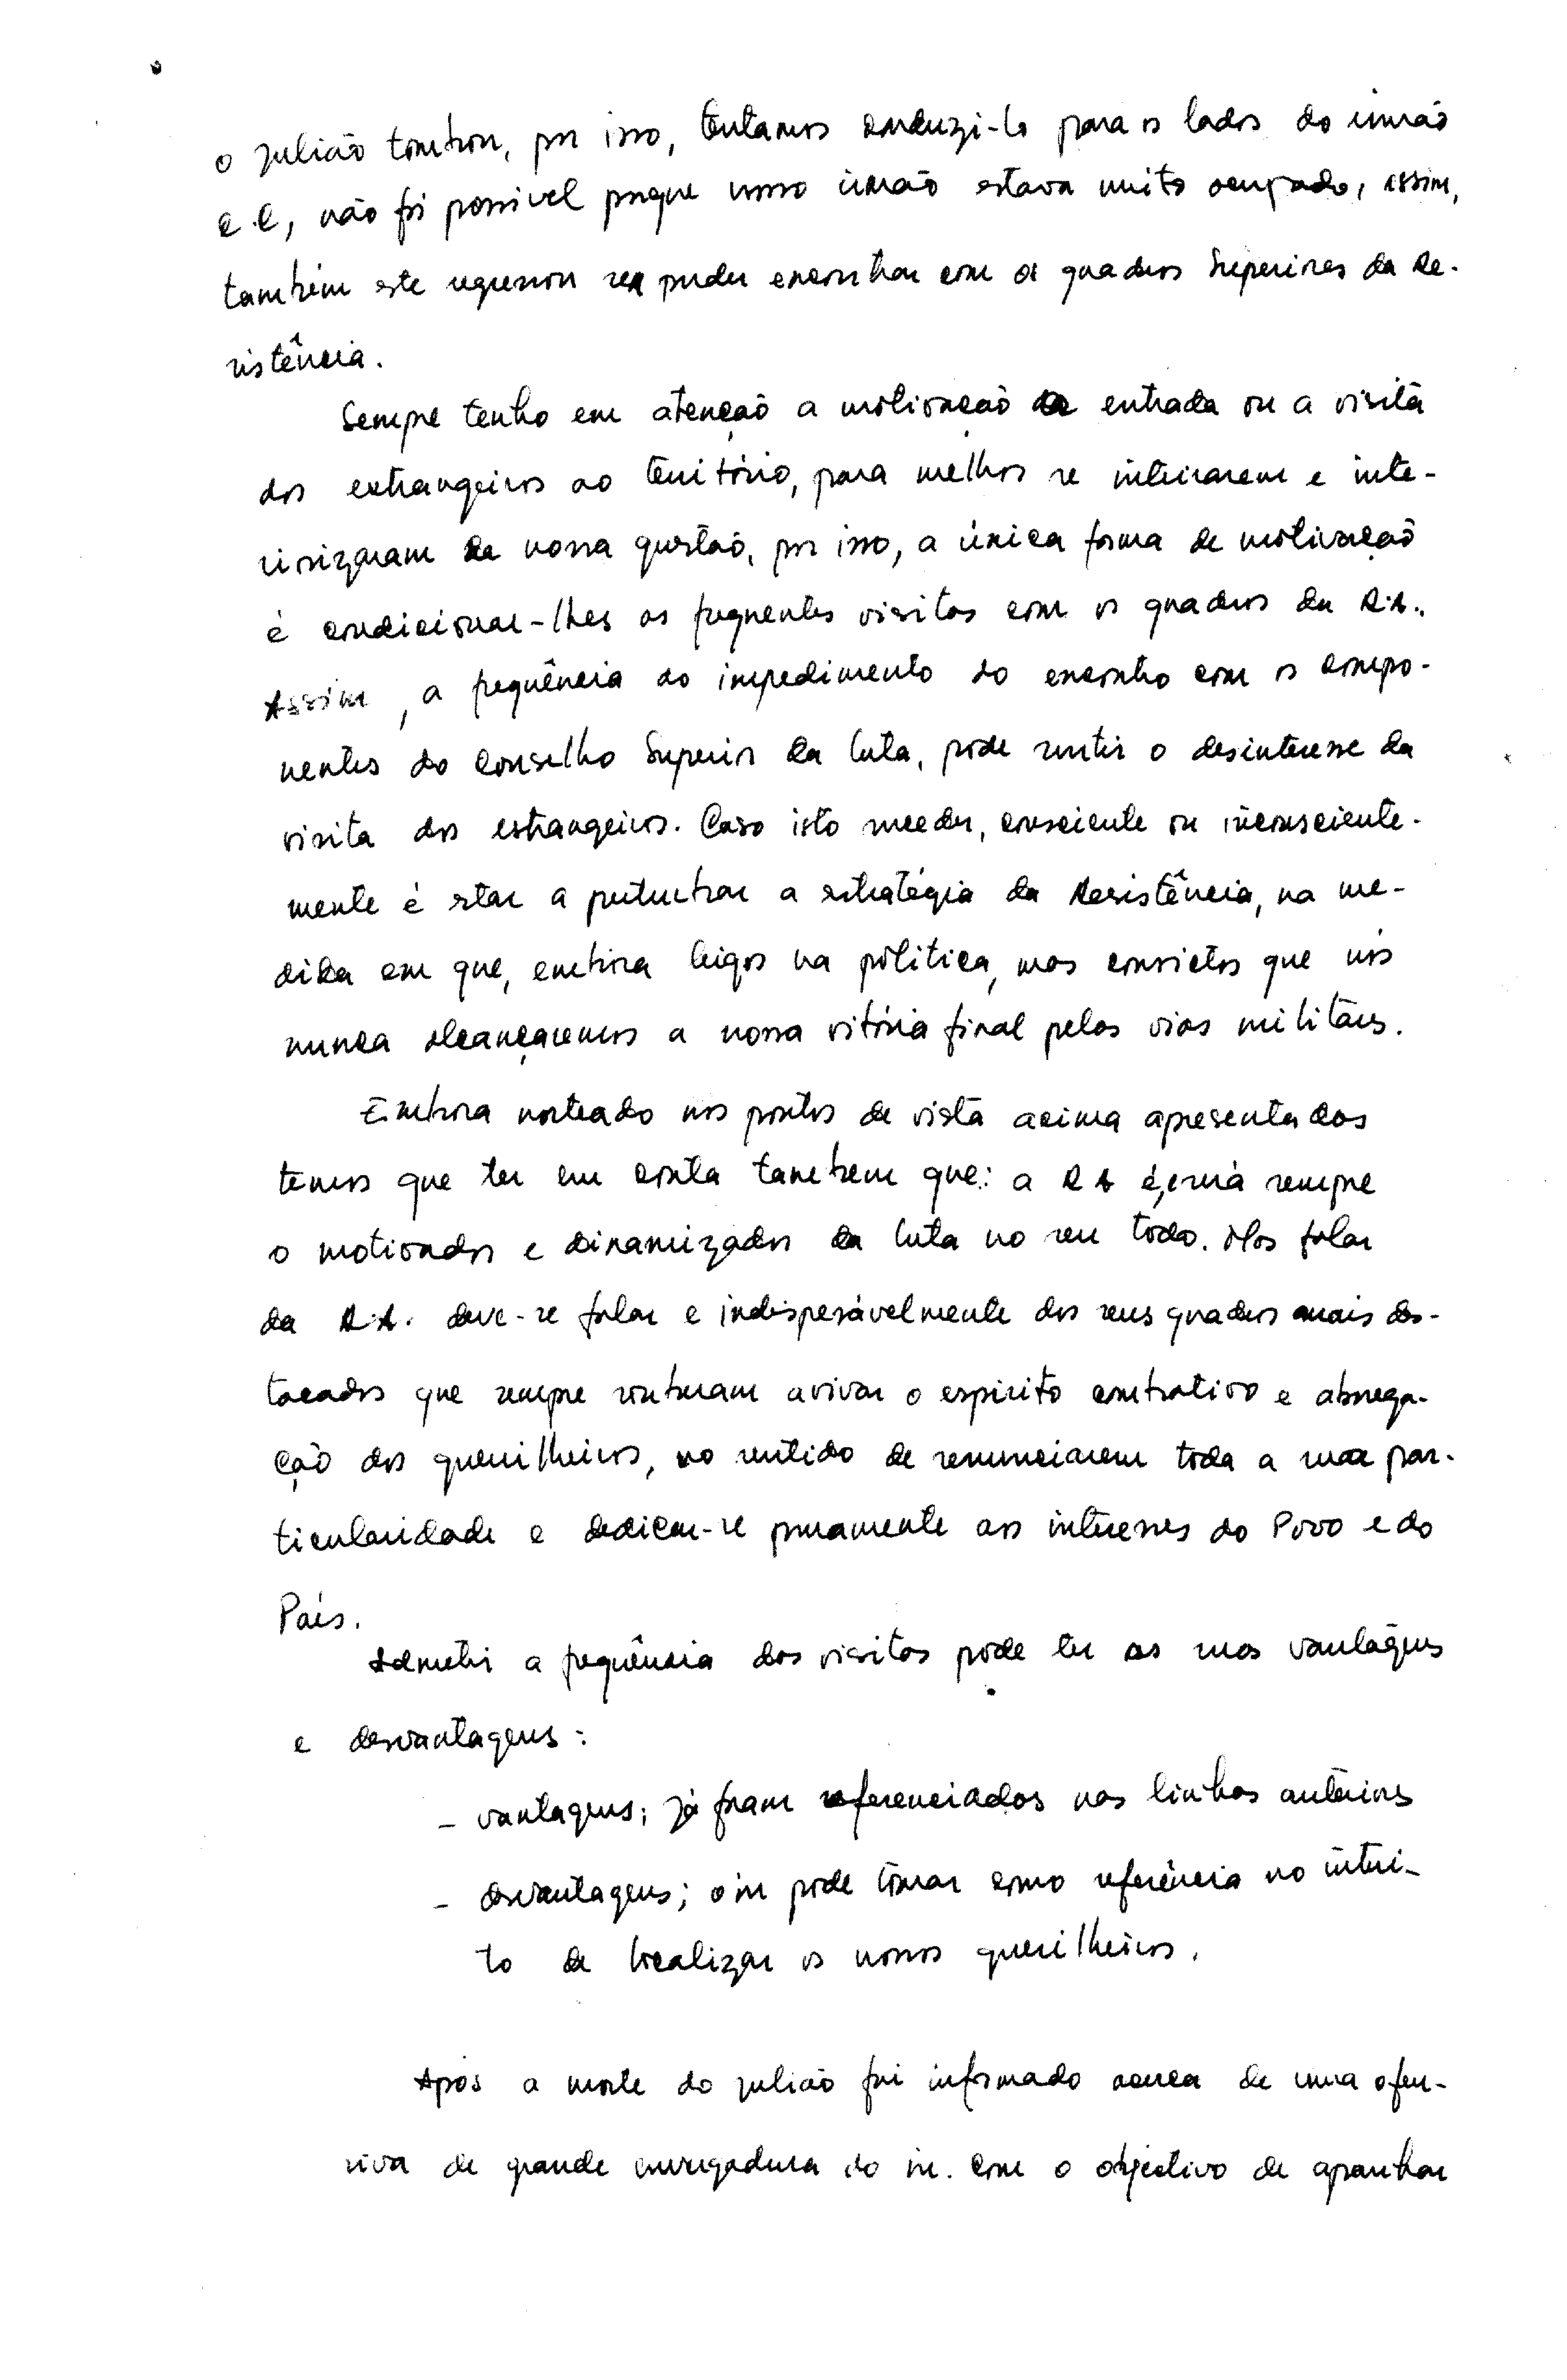 o Julião tombou, por isso, tentamos conduzi-lo para os lados do irmão
R.C, não foi possível porque nosso irmão estava muito ocupado, assim,
também este regressou sem puder encontrar com os quadros Superiores da Re-
sistência.
Sempre tenho em atenção a motivação da entrada ou a visita
dos extrangeiros ao território, para melhor se inteirarem e inte-
riorizaram da nossa questão, por isso, a única forma de motivação
é condicionar-lhes as frequentes visitas com os quadros da R.A..
Assim, a frequência do impedimento do encontro com os compo-
nentes do Conselho Superior da Luta, pode surtir o desinteresse da
visita dos estrangeiros. Caso isto suceder, consciente ou inconsciente-
mente é estar a perturbar a estratégia da Resistência, na me-
dida em que, embora leigos na política, mas convictos que nós
nunca alcançaremos a nossa vitória final pelas vias militares.
Embora norteado nos pontos de vista acima apresentados
temos que ter em conta tambem que: a RA é, será sempre
o motivador e dinamizador da luta no seu todo. Mas falar
da R.A. deve-se falar e indispensávelmente dos seus quadros mais des-
tacados que sempre souberam avivar o espírito combativo e abnega-
ção dos guerrilheiros, no sentido de renunciarem toda a sua par-
ticularidade e dedicar-se puramente aos interesses do Povo e do
País.
Admitir a frequência das visitas pode ter as suas vantagens
e desvantagens:
- vantagens; já foram referenciados nas linhas anteriores
- desvantagens; o in pode tomar como referência no intui-
to de localizar os nossos guerrilheiros.
Após a morte do Julião fui informado acerca de uma ofen-
siva de grande envergadura do in. com o objectivo de apanhar